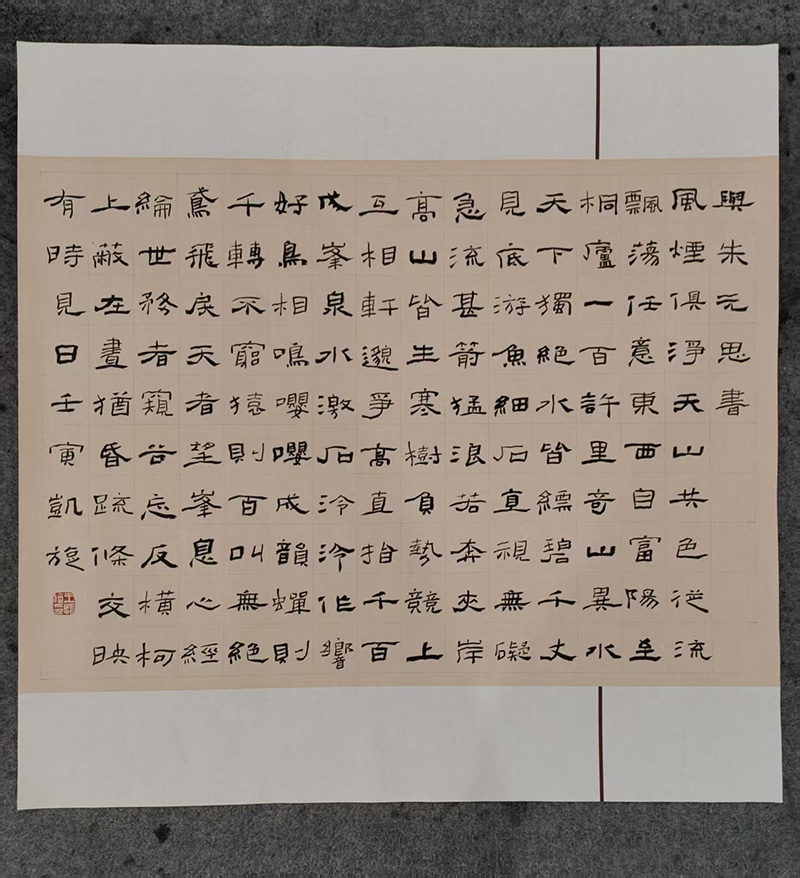 與朱元思書
風煙俱淨天山共色從流
飄蕩任意東西自富陽至
桐廬一百許里奇山異水
天下獨絕水皆縹碧千丈
見底游魚細石直視無礙
急流甚箭猛浪若奔夾岸
高山皆生寒樹負勢競上
互相軒邈爭高直指千百
成峯泉水激石泠泠作響
好鳥相鳴嚶嚶成韻蟬則
千轉不窮猿則百叫無絕
鳶飛戾天者望峯息心經
綸世務者窺谷忘反橫柯
上蔽在晝猶昏疏條交映
有時見日壬寅凱旋